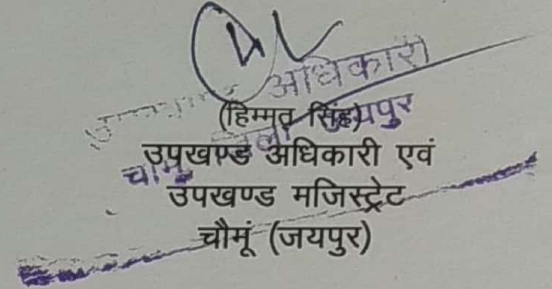 अधिकारी
(हिम्मत सिंह)
जयपुर
उपखण्ड अधिकारी एवं
उपखण्ड मजिस्ट्रेट
चौमूं (जयपुर)